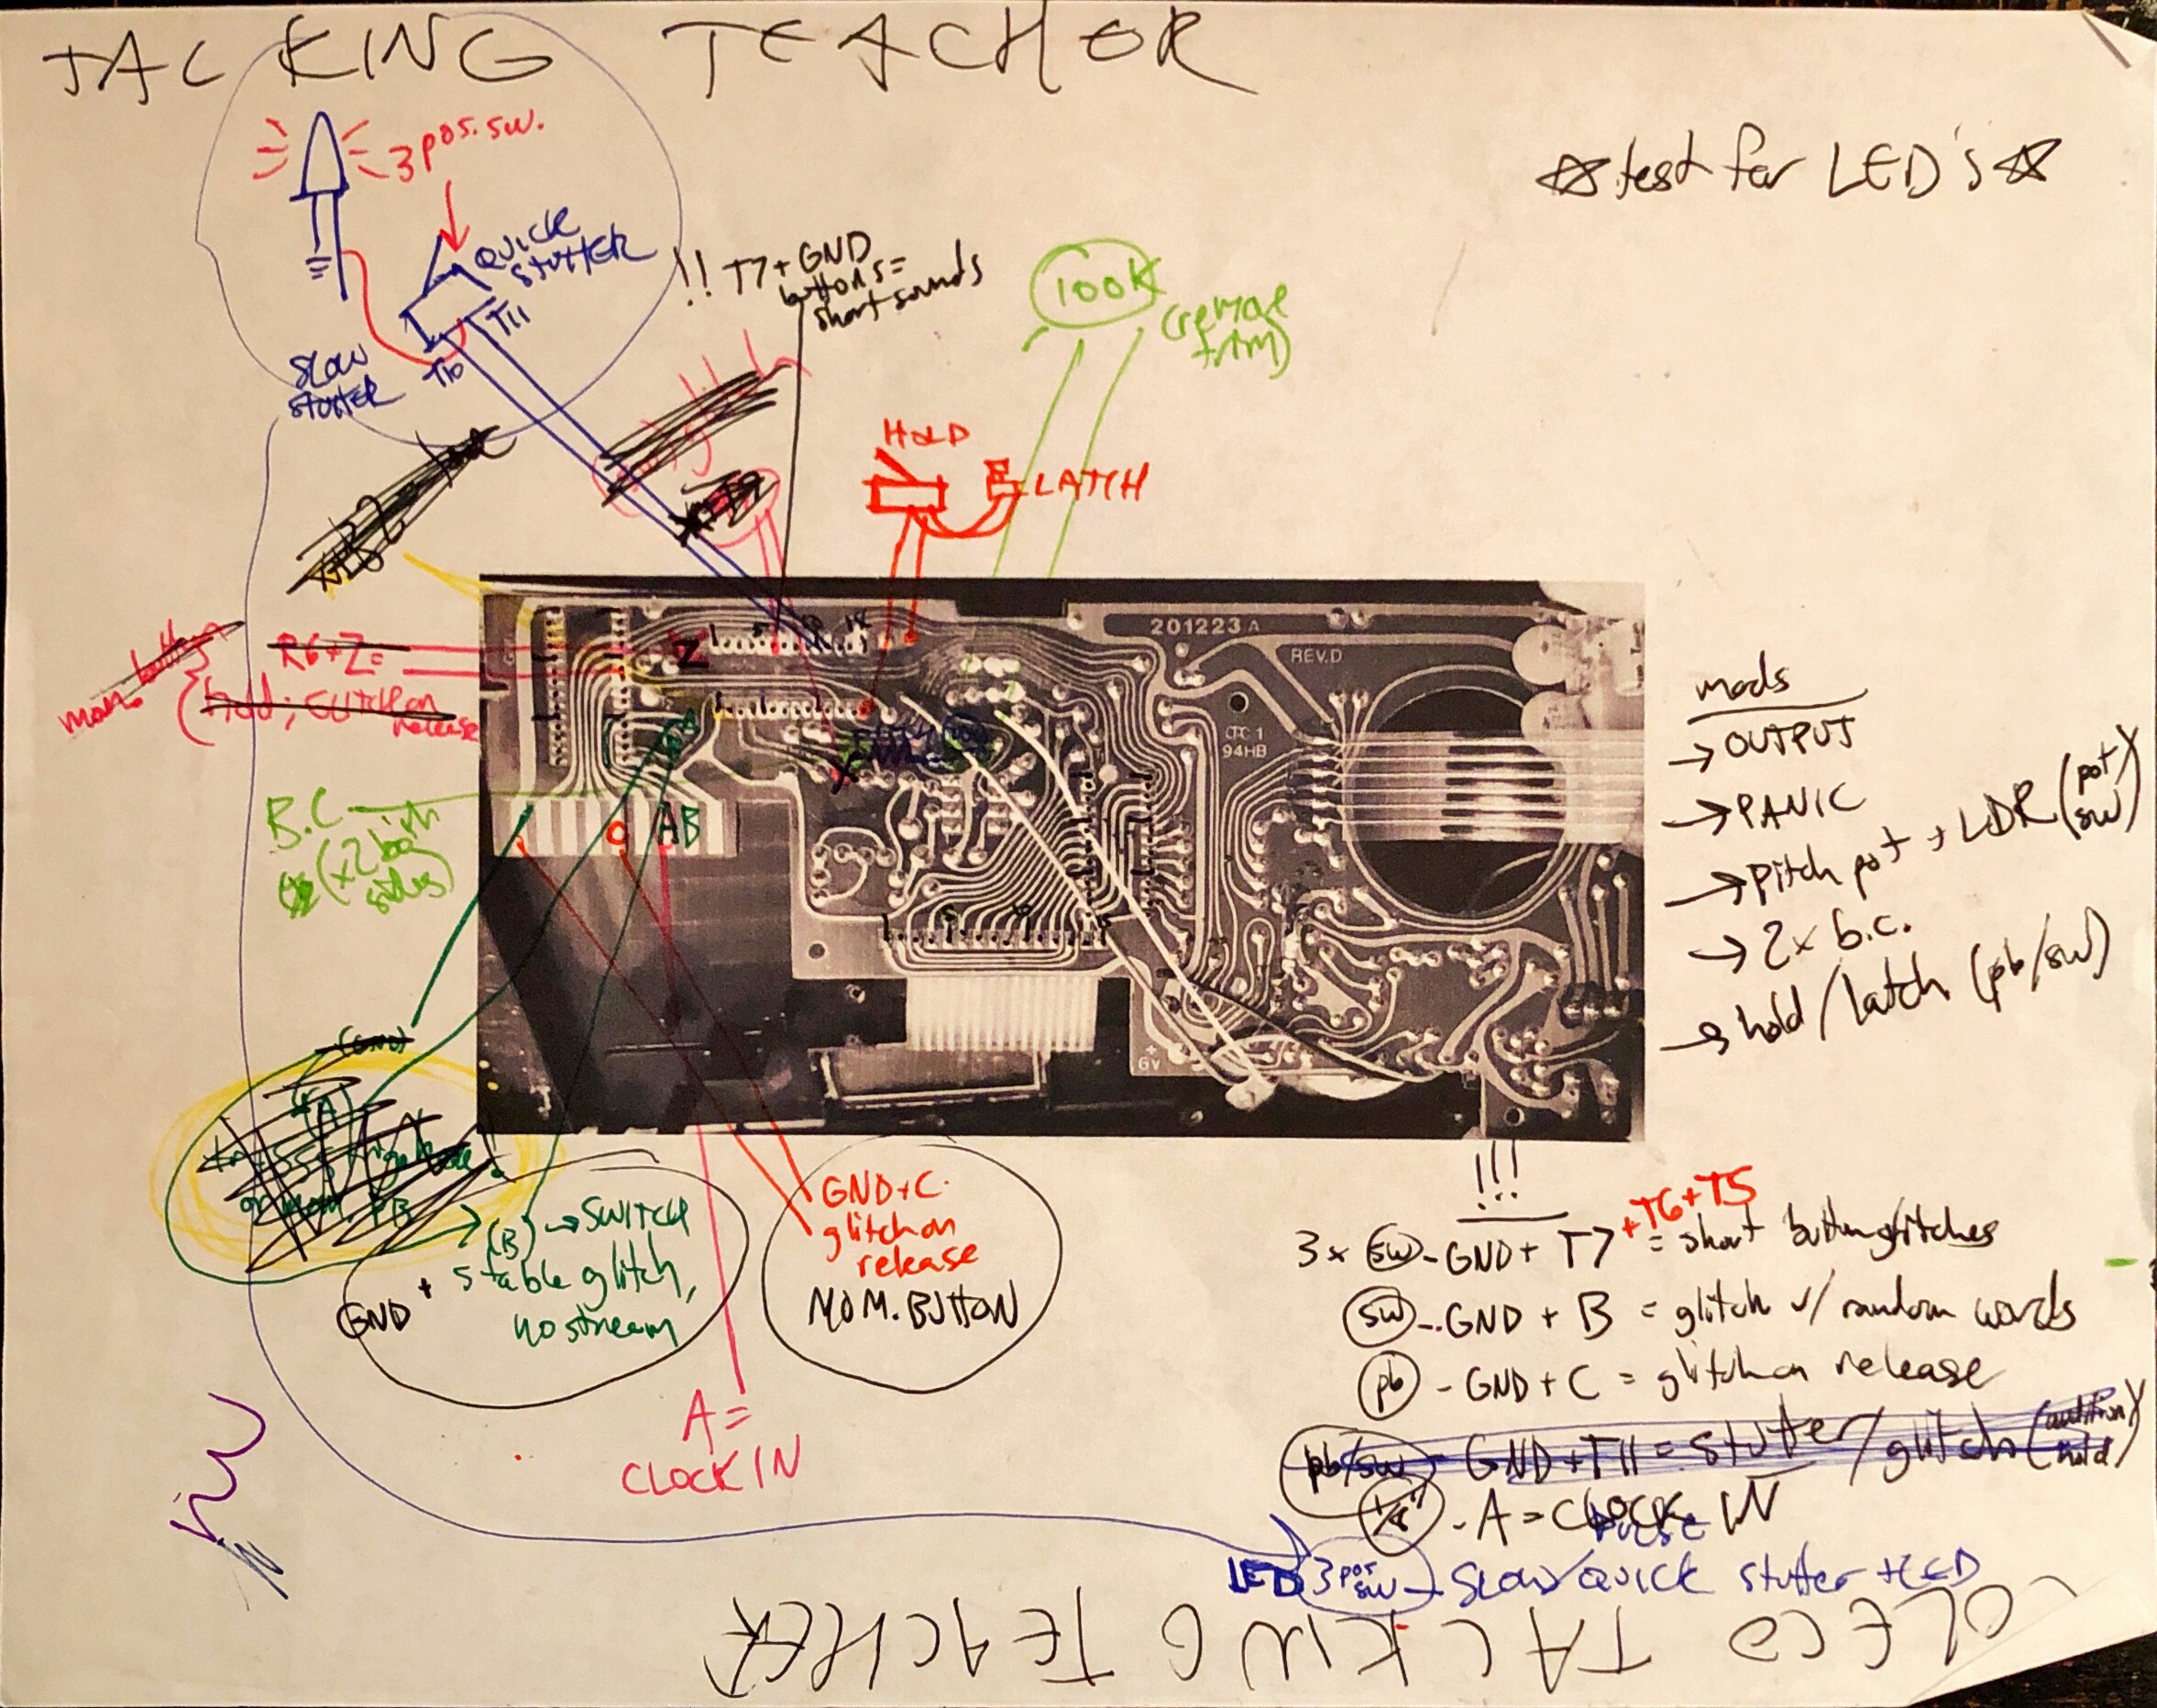 TACKING TEACHER
☆ test for LED's ☆
3 pos. sw.
QUICK
STUTTER
T11
T10
SLOW
STUTTER
!! T7+GND
buttons =
short sounds
100K
(remove
trim)
HOLD
LATCH
R6+Z=
hold; glitch on
release
mom. button
B.C
201223 A
REV.D
CTC 1
94HB
6V
Z
C
A B
mods
→ OUTPUT
→ PANIC
→ pitch pot + LDR (pot/
sw)
→ 2x b.c.
→ hold/latch (pb/sw)
(GND)
(A)
(B) → SWITCH
GND + stable glitch,
no stream
GND+C.
glitch on
release
MOM. BUTTON
A =
CLOCK IN
!!!
3x sw - GND + T7 +T6+T5 = short button glitches
sw - GND + B = glitch w/ random words
pb - GND + C = glitch on release
pb/sw - GND+T11 = stutter/glitch
hold)
1/8" - A = CLOCK IN
PULSE
LED 3 pos sw - SLOW/QUICK stutter + LED
COLECO TALKING TEACHER